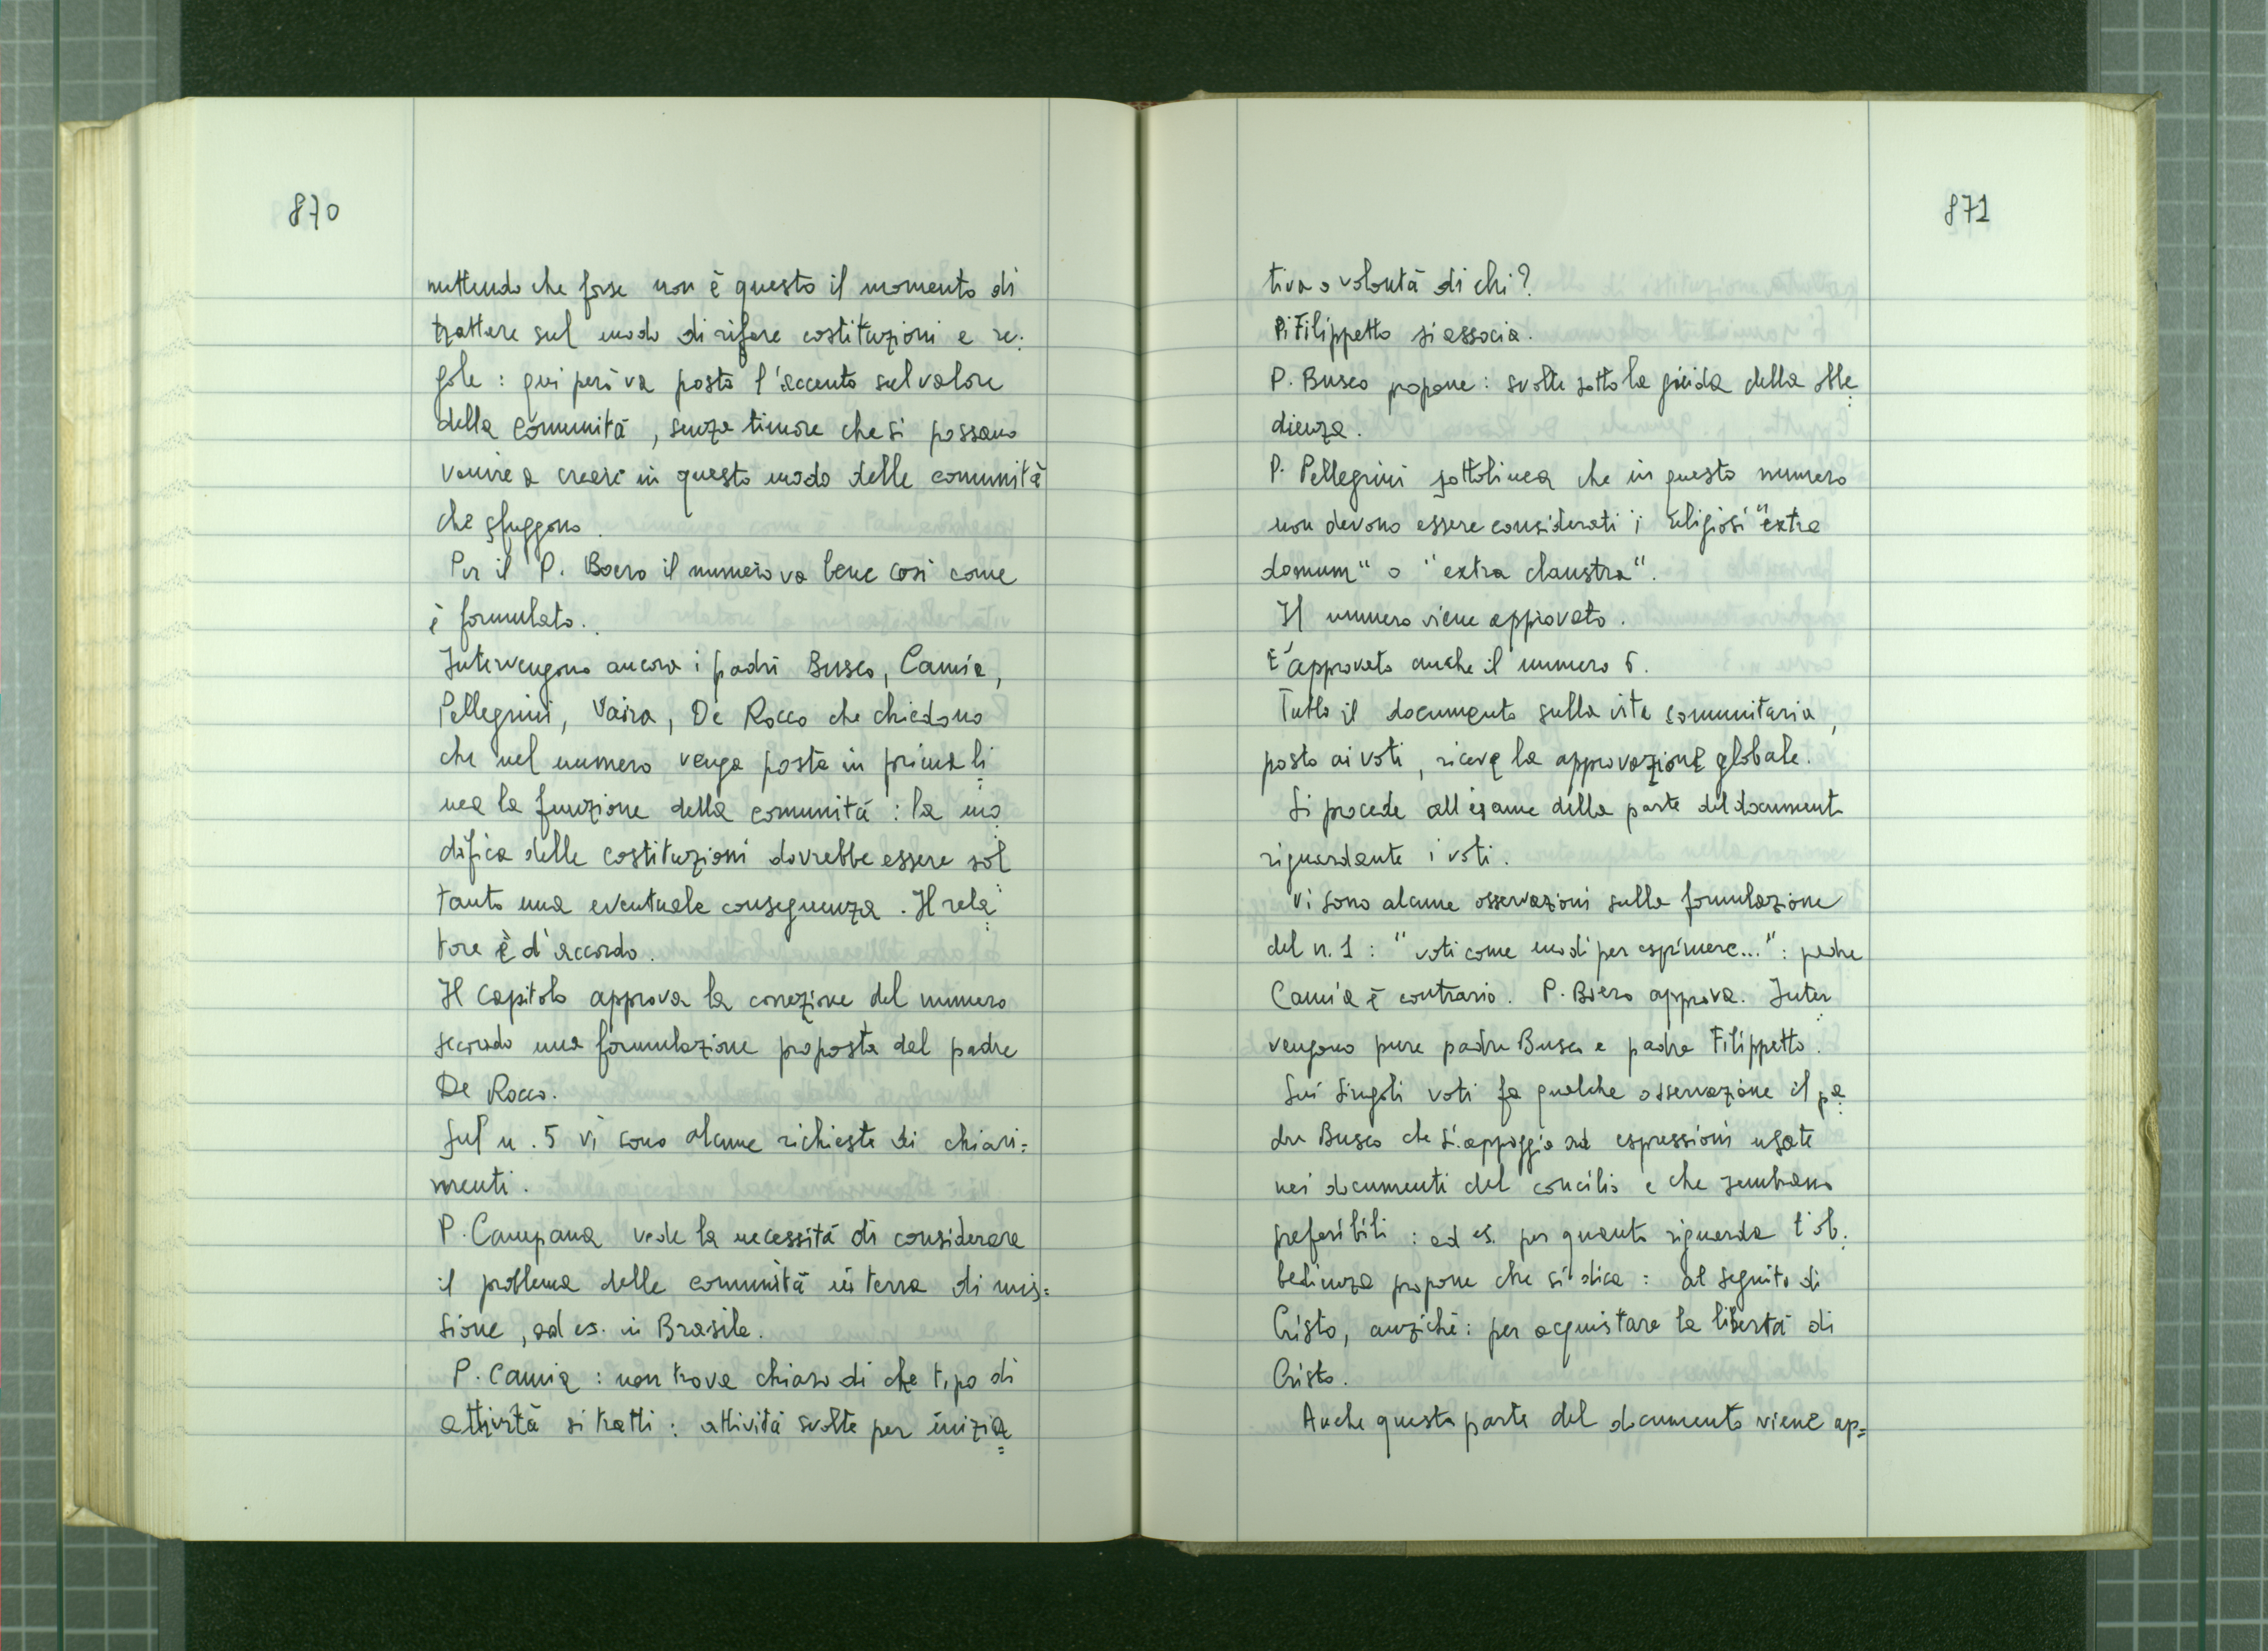 870
mettendo che forse non è questo il momento di
trattare sul modo di rifare costituzioni e re:
gole : qui però va posto l'accento sul valore
della comunità, senza timore che si possano
venire a creare in questo modo delle comunità
che sfuggono.
Per il P. Boero il numero va bene così come
è formulato.
Intervengono ancora i padri Busco, Camia,
Pellegrini, Vaira, De Rocco che chiedono
che nel numero venga posta in prima li
nea la funzione della comunità : la mo
difica delle costituzioni dovrebbe essere sol
tanto una eventuale conseguenza. Il rela
tore è d'accordo.
Il Capitolo approva la correzione del numero
secondo una formulazione proposta dal padre
De Rocco.
Sul n. 5 vi sono alcune richieste di chiari=
menti.
P. Campana vede la necessità di considerare
il problema delle comunità in terra di mis=
sione, ad es. in Brasile.
P. Camia : non trova chiaro di che tipo di
attività si tratti : attività svolte per inizia
871
tiva o volontà di chi?
P. Filippetto si associa.
P. Busco propone : svolte sotto la guida della obbe
dienza.
P. Pellegrini sottolinea che in questo numero
non devono essere considerati i religiosi "extra
domum" o "extra claustra".
Il numero viene approvato.
È approvato anche il numero 6.
Tutto il documento sulla vita comunitaria,
posto ai voti, riceve la approvazione globale.
Si procede all'esame della parte del documento
riguardante i voti.
Vi sono alcune osservazioni sulla formulazione
del n. 1 : "voti come modi per esprimere..." : padre
Camia è contrario. P. Boero approva. Inter
vengono pure padre Busco e padre Filippetto.
Sui singoli voti fa qualche osservazione il pa
dre Busco che si appoggia ad espressioni usate
nei documenti del concilio e che sembrano
preferibili : ad es. per quanto riguarda l'ob:
bedienza propone che si dica : al seguito di
Cristo, anziché : per acquistare la libertà di
Cristo.
Anche questa parte del documento viene ap=